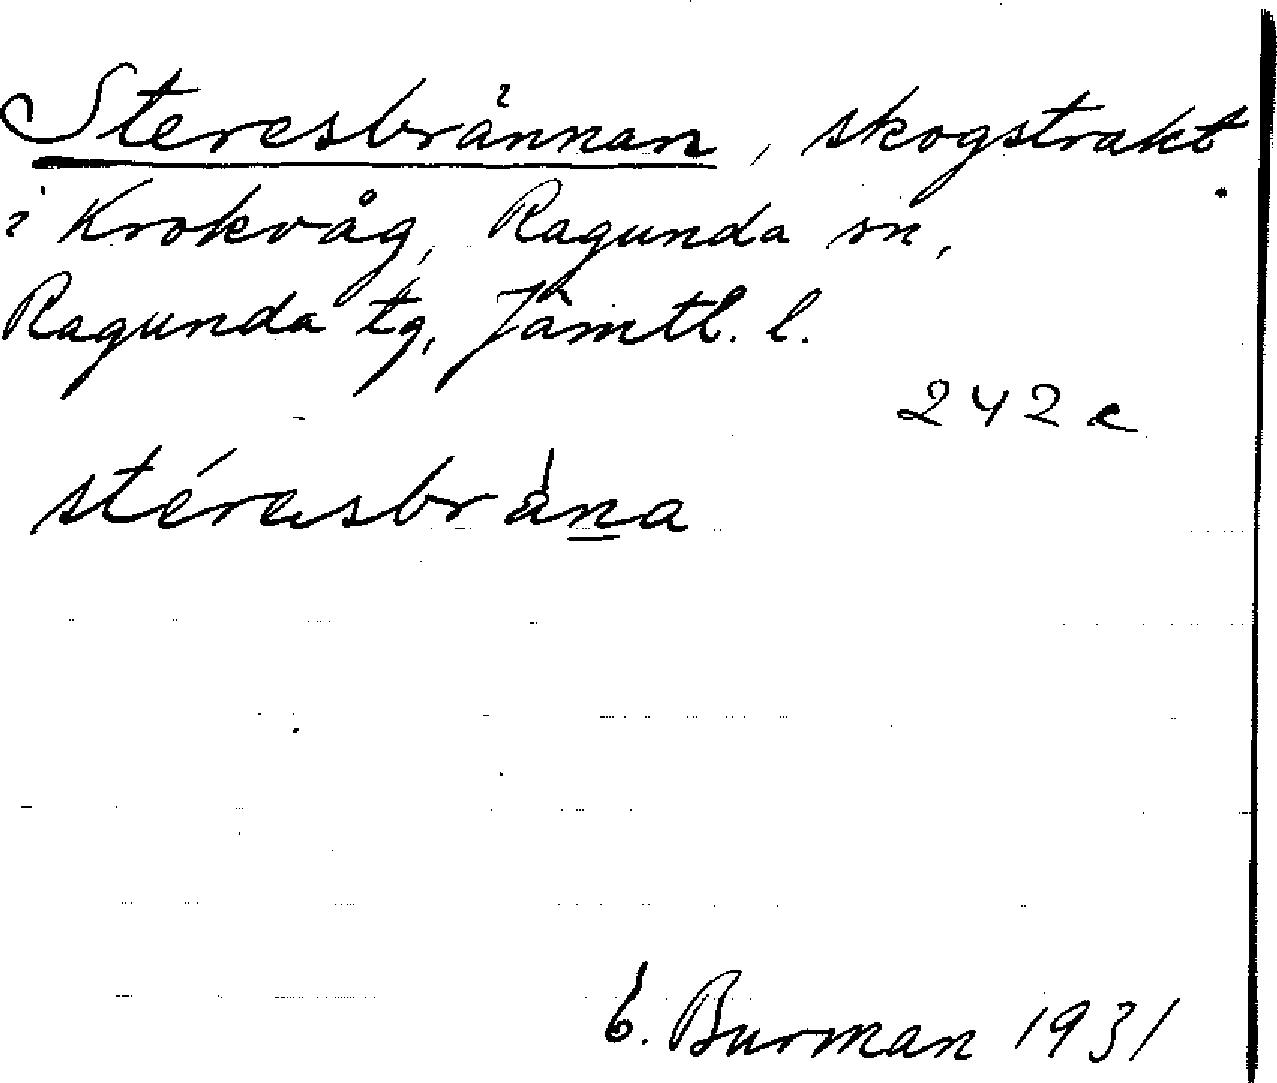 Steresbrännan, skogstrakt
i Krokvåg, Ragunda sn,
Ragunda tg, Jämtl. l.
242 c
stéresbräna
E. Burman 1931